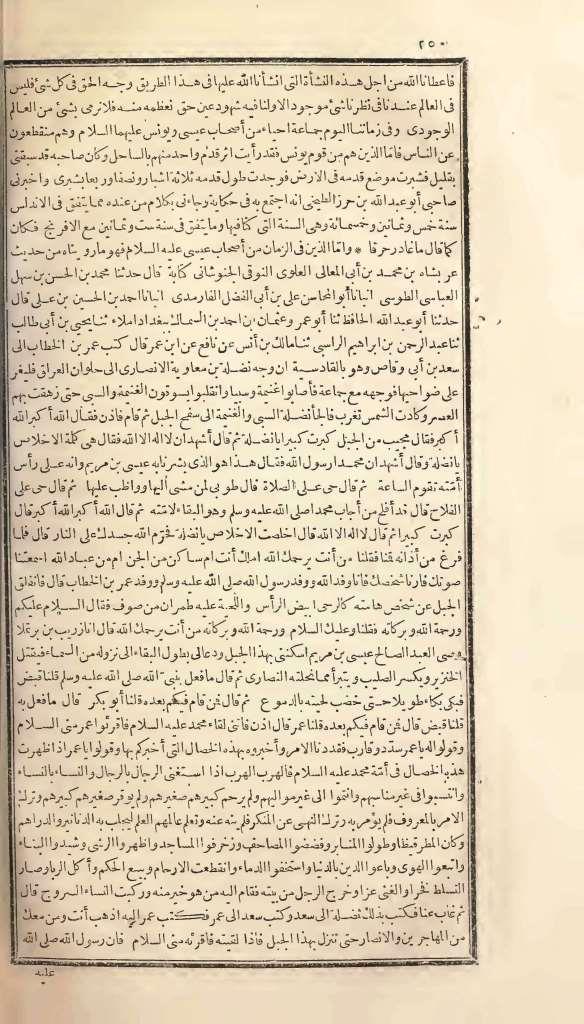 ٢٥٠
فاعطانا الله من اجل هذه النشأة التى انشأنا الله عليها فى هذا الطريق وجه الحق فى كل شئ فليس
فى العالم عندنا فى نظرنا شئ موجود الا ولنا فيه شهود عين حق نعظمه منه فلا نرمى بشئ من العالم
الوجودى وفى زماننا اليوم جماعة احياء من أصحاب عيسى ويونس عليهما السلام وهم منقطعون
عن الناس فاما الذين هم من قوم يونس فقد رأيت اثر قدم واحد منهم بالساحل وكان صاحبه قد سبقنى
بقليل فشبرت موضع قدمه فى الارض فوجدت طول قدمه ثلاثة اشبار ونصفا وربعا بشبرى واخبرنى
صاحبى أبو عبد الله بن خرز الطنجى انه اجتمع به فى حكاية وجاءنى بكلام من عنده مما يتفق فى الاندلس
سنة خمس وثمانين وخمسمائة وهى السنة التى كنا فيها وما يتفق فى سنة ست وثمانين مع الافرنج فكان
كما قال ما غادر حرفا * واما الذين فى الزمان من أصحاب عيسى عليه السلام فهو ما رويناه من حديث
عربشاه بن محمد بن أبى المعالى العلوى النوقى الخبوشانى كتابة قال حدثنا محمد بن الحسن بن سهل
العباسى الطوسى انبأنا أبو المحاسن على بن أبى الفضل الفارمدى انبأنا احمد بن الحسين بن على قال
حدثنا أبو عبد الله الحافظ ثنا أبو عمرو عثمان بن احمد بن السماك ببغداد املاء ثنا يحيى بن أبى طالب
ثنا عبد الرحمن بن ابراهيم الراسبى ثنا مالك بن أنس عن نافع عن ابن عمر قال كتب عمر بن الخطاب الى
سعد بن أبى وقاص وهو بالقادسية ان وجه نضلة بن معاوية الانصارى الى حلوان العراق فليغر
على ضواحيها فوجهه مع جماعة فأصابوا غنيمة وسبيا وانقلبوا يسوقون الغنيمة والسبى حتى رهقت بهم
العصر وكادت الشمس تغرب فألجأ نضلة السبى والغنيمة الى سفح الجبل ثم قام فاذن فقال الله أكبر الله
أكبر فقال مجيب من الجبل كبرت كبيرا يا نضلة ثم قال أشهد ان لا اله الا الله فقال هى كلمة الاخلاص
يا نضلة وقال أشهد ان محمدا رسول الله فقال هذا هو الذى بشرنا به عيسى بن مريم وانه على رأس
أمته تقوم الساعة ثم قال حى على الصلاة قال طوبى لمن مشى اليها وواظب عليها ثم قال حى على
الفلاح قال قد أفلح من أجاب محمدا صلى الله عليه وسلم وهو البقاء لامته ثم قال الله أكبر الله أكبر قال
كبرت كبيرا ثم قال لا اله الا الله قال اخلصت الاخلاص يا نضلة فحرم الله جسدك على النار قال فلما
فرغ من أذانه قنا فقلنا من أنت يرحمك الله املك أنت ام ساكن من الجن ام من عباد الله اسمعتنا
صوتك فأرنا شخصك فانا وفد الله ووفد رسول الله صلى الله عليه وسلم ووفد عمر بن الخطاب قال فانفلق
الجبل عن شخص هامته كالرحى ابيض الرأس واللحية عليه طمران من صوف فقال السلام عليكم
ورحمة الله وبركاته فقلنا وعليك السلام ورحمة الله وبركاته من أنت يرحمك الله قال انا زريب بن برثملا
وصى العبد الصالح عيسى بن مريم اسكننى بهذا الجبل ودعا لى بطول البقاء الى نزوله من السماء فيقتل
الخنزير ويكسر الصليب ويتبرأ مما نحلته النصارى ثم قال ما فعل نبى الله صلى الله عليه وسلم قلنا قبض
فبكى بكاء طويلا حتى خضب لحيته بالدموع ثم قال فمن قام فيكم بعده قلنا أبو بكر قال ما فعل به
قلنا قبض قال فمن قام فيكم بعده قلنا عمر قال اذن فاتنى لقاء محمد عليه السلام فاقرئوا عمر منى السلام
وقولوا له يا عمر سدد وقارب فقد دنا الامر وأخبروه بهذه الخصال التى أخبركم بها وقولوا يا عمر اذا ظهرت
هذه الخصال فى أمة محمد عليه السلام فالهرب الهرب اذا استغنى الرجال بالرجال والنساء بالنساء
وانتسبوا فى غير مناسبهم وانتموا الى غير مواليهم ولم يرحم كبيرهم صغيرهم ولم يوقر صغيرهم كبيرهم وترك
الامر بالمعروف فلم يؤمر به وترك النهى عن المنكر فلم ينه عنه وتعلم عالمهم العلم ليجلب به الدنانير والدراهم
وكان المطر قيظا وطولوا المنابر وفضضوا المصاحف وزخرفوا المساجد واظهروا الرشى وشيدوا البناء
واتبعوا الهوى وباعوا الدين بالدنيا واستخفوا الدماء وانقطعت الارحام وبيع الحكم وأكل الربا وصار
التسلط فخرا والغنى عزا وخرج الرجل من بيته فقام اليه من هو خير منه وركبت النساء السروج قال
ثم غاب عنا فكتب بذلك نضلة الى سعد وكتب سعد الى عمر فكتب عمر اليه اذهب أنت ومن معك
من المهاجرين والانصار حتى تنزل بهذا الجبل فاذا لقيته فاقرئه منى السلام فان رسول الله صلى الله
عليه